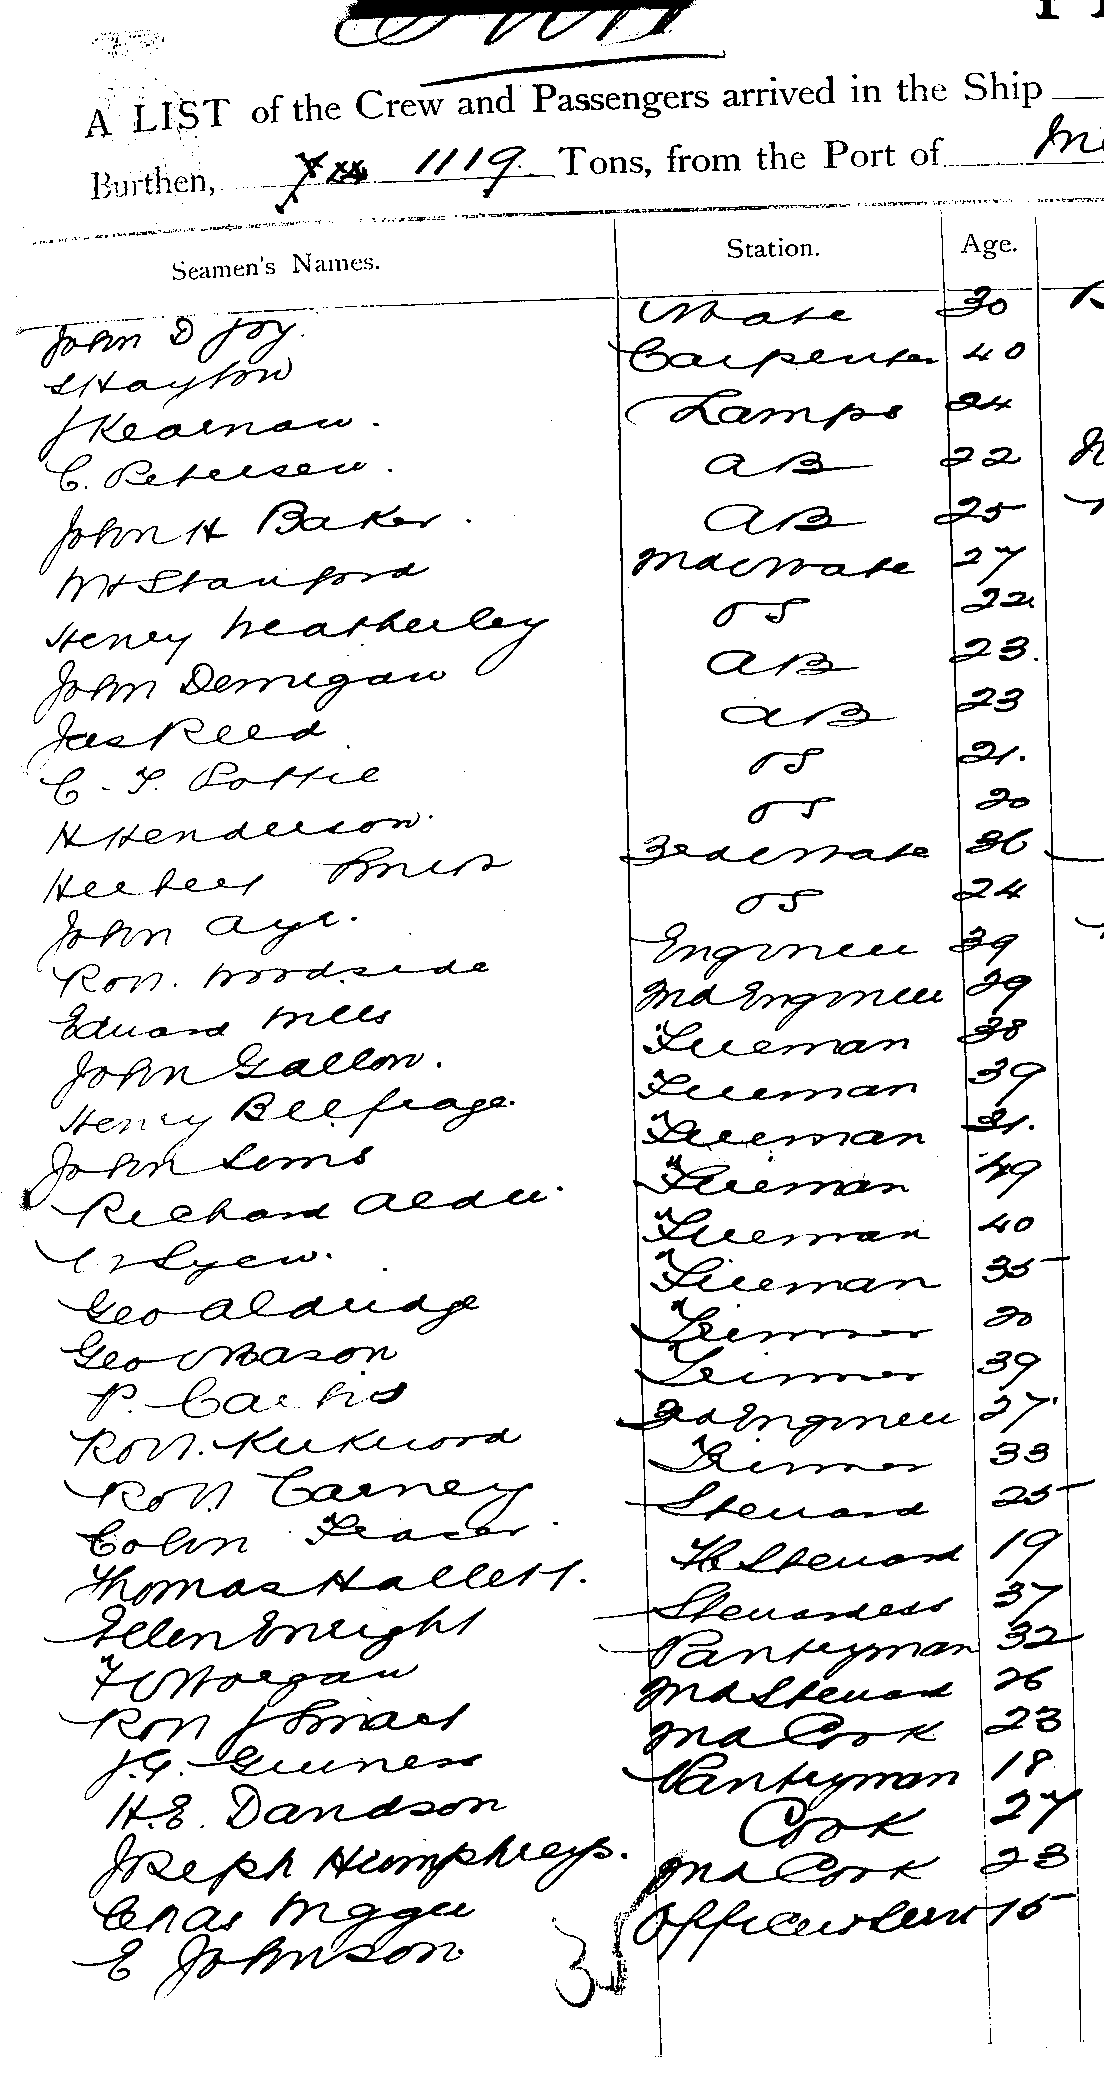 A LIST of the Crew and Passengers arrived in the Ship
Burthen, 1119 Tons, from the Port of
Seamen's Names. Station. Age.
John D Joy Mate 30
S Hayton Carpenter 40
J Kearnan. Lamps 24
C. Petersen. AB 22
John H Baker. AB 25
W H Stanford 2nd Mate 27
Henry Weatherley OS 22
John Dernigan AB 23.
Jas Reed AB 23
C. F. Pottie OS 21.
H Henderson. OS 20
Herbert 3rd Mate 36
John Aye. OS 24
Robt. Woodside Engineer 39
Edward Mills 2nd Engineer 29
John Gallon. Fireman 38
Henry Belfrage. Fireman 39
John Sims Fireman 31.
Richard Alder. Fireman 49
Lyew. Fireman 40
Geo Aldridge Fireman 35
Geo Mason Trimmer 20
P. Trimmer 39
Robt. Kirkwood 3rd Engineer 27
Robt Carney Trimmer 33
Colin Fraser. Steward 25
Thomas Hallett. Steward 19
Ellen Enright Stewardess 37
F Morgan Pantryman 32
Robt J Smart 2nd Steward 26
J.G. Guiness 2nd Cook 23
H.E. Davidson Pantryman 18
Joseph Humphreys. Cook 27
Chas 2nd Cook 23
E Johnson Officers Serv 15